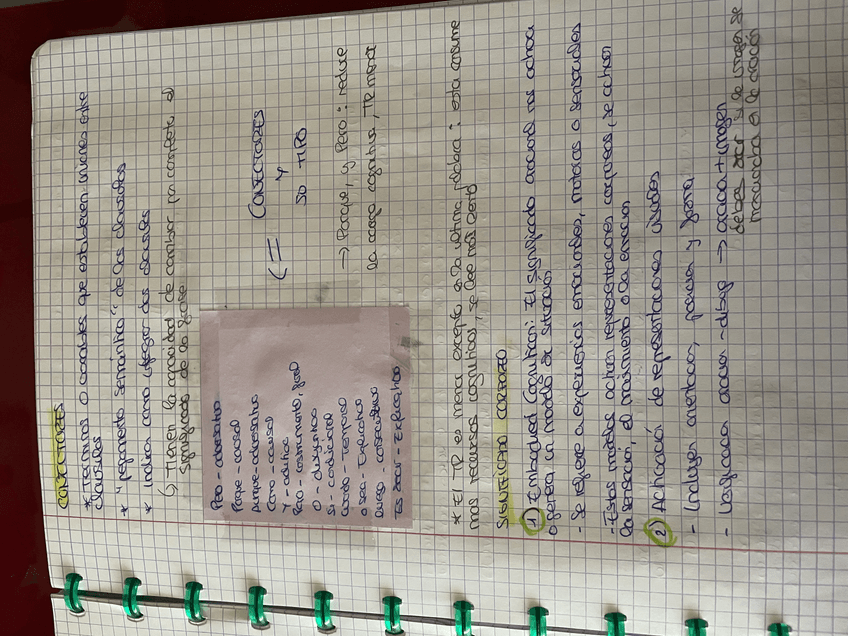 CONECTORES
* Términos o vocablos que establecen uniones entre
cláusulas
* "pegamento semántico" de las cláusulas
* Indica como ligar dos cláusulas
↳ Tienen la capacidad de cambiar por completo el
significado de la frase
Pero - adversativo
Porque - causal
Aunque - adversativo
Como - causal
Y - aditivo
Para - instrumento, final
O - disyuntivo
Si - condicional
Cuando - Temporal
O sea - Explicativo
Luego - consecutivo
Es decir - Explicativo
(= CONECTORES
Y
SU TIPO
→ Porque, y Pero: reduce
la carga cognitiva, TR menor
* El TR es menor excepto en la última palabra: esta consume
más recursos cognitivos, se lee más lento
SIGNIFICADO CORPÓREO
1) Embodied Cognition: El significado oracional nos activa
o genera un modelo de situación
- Se refiere a experiencias emocionales, motoras o sensoriales
- Estos modelos activan representaciones corpóreas, se activan
la sensación, el movimiento o la emoción
2) Activación de representaciones visuales
- Incluyen orientación, posición y forma
- Verificación oración - dibujo → oración + imagen
deben decir si la imagen se
mencionaba en la oración